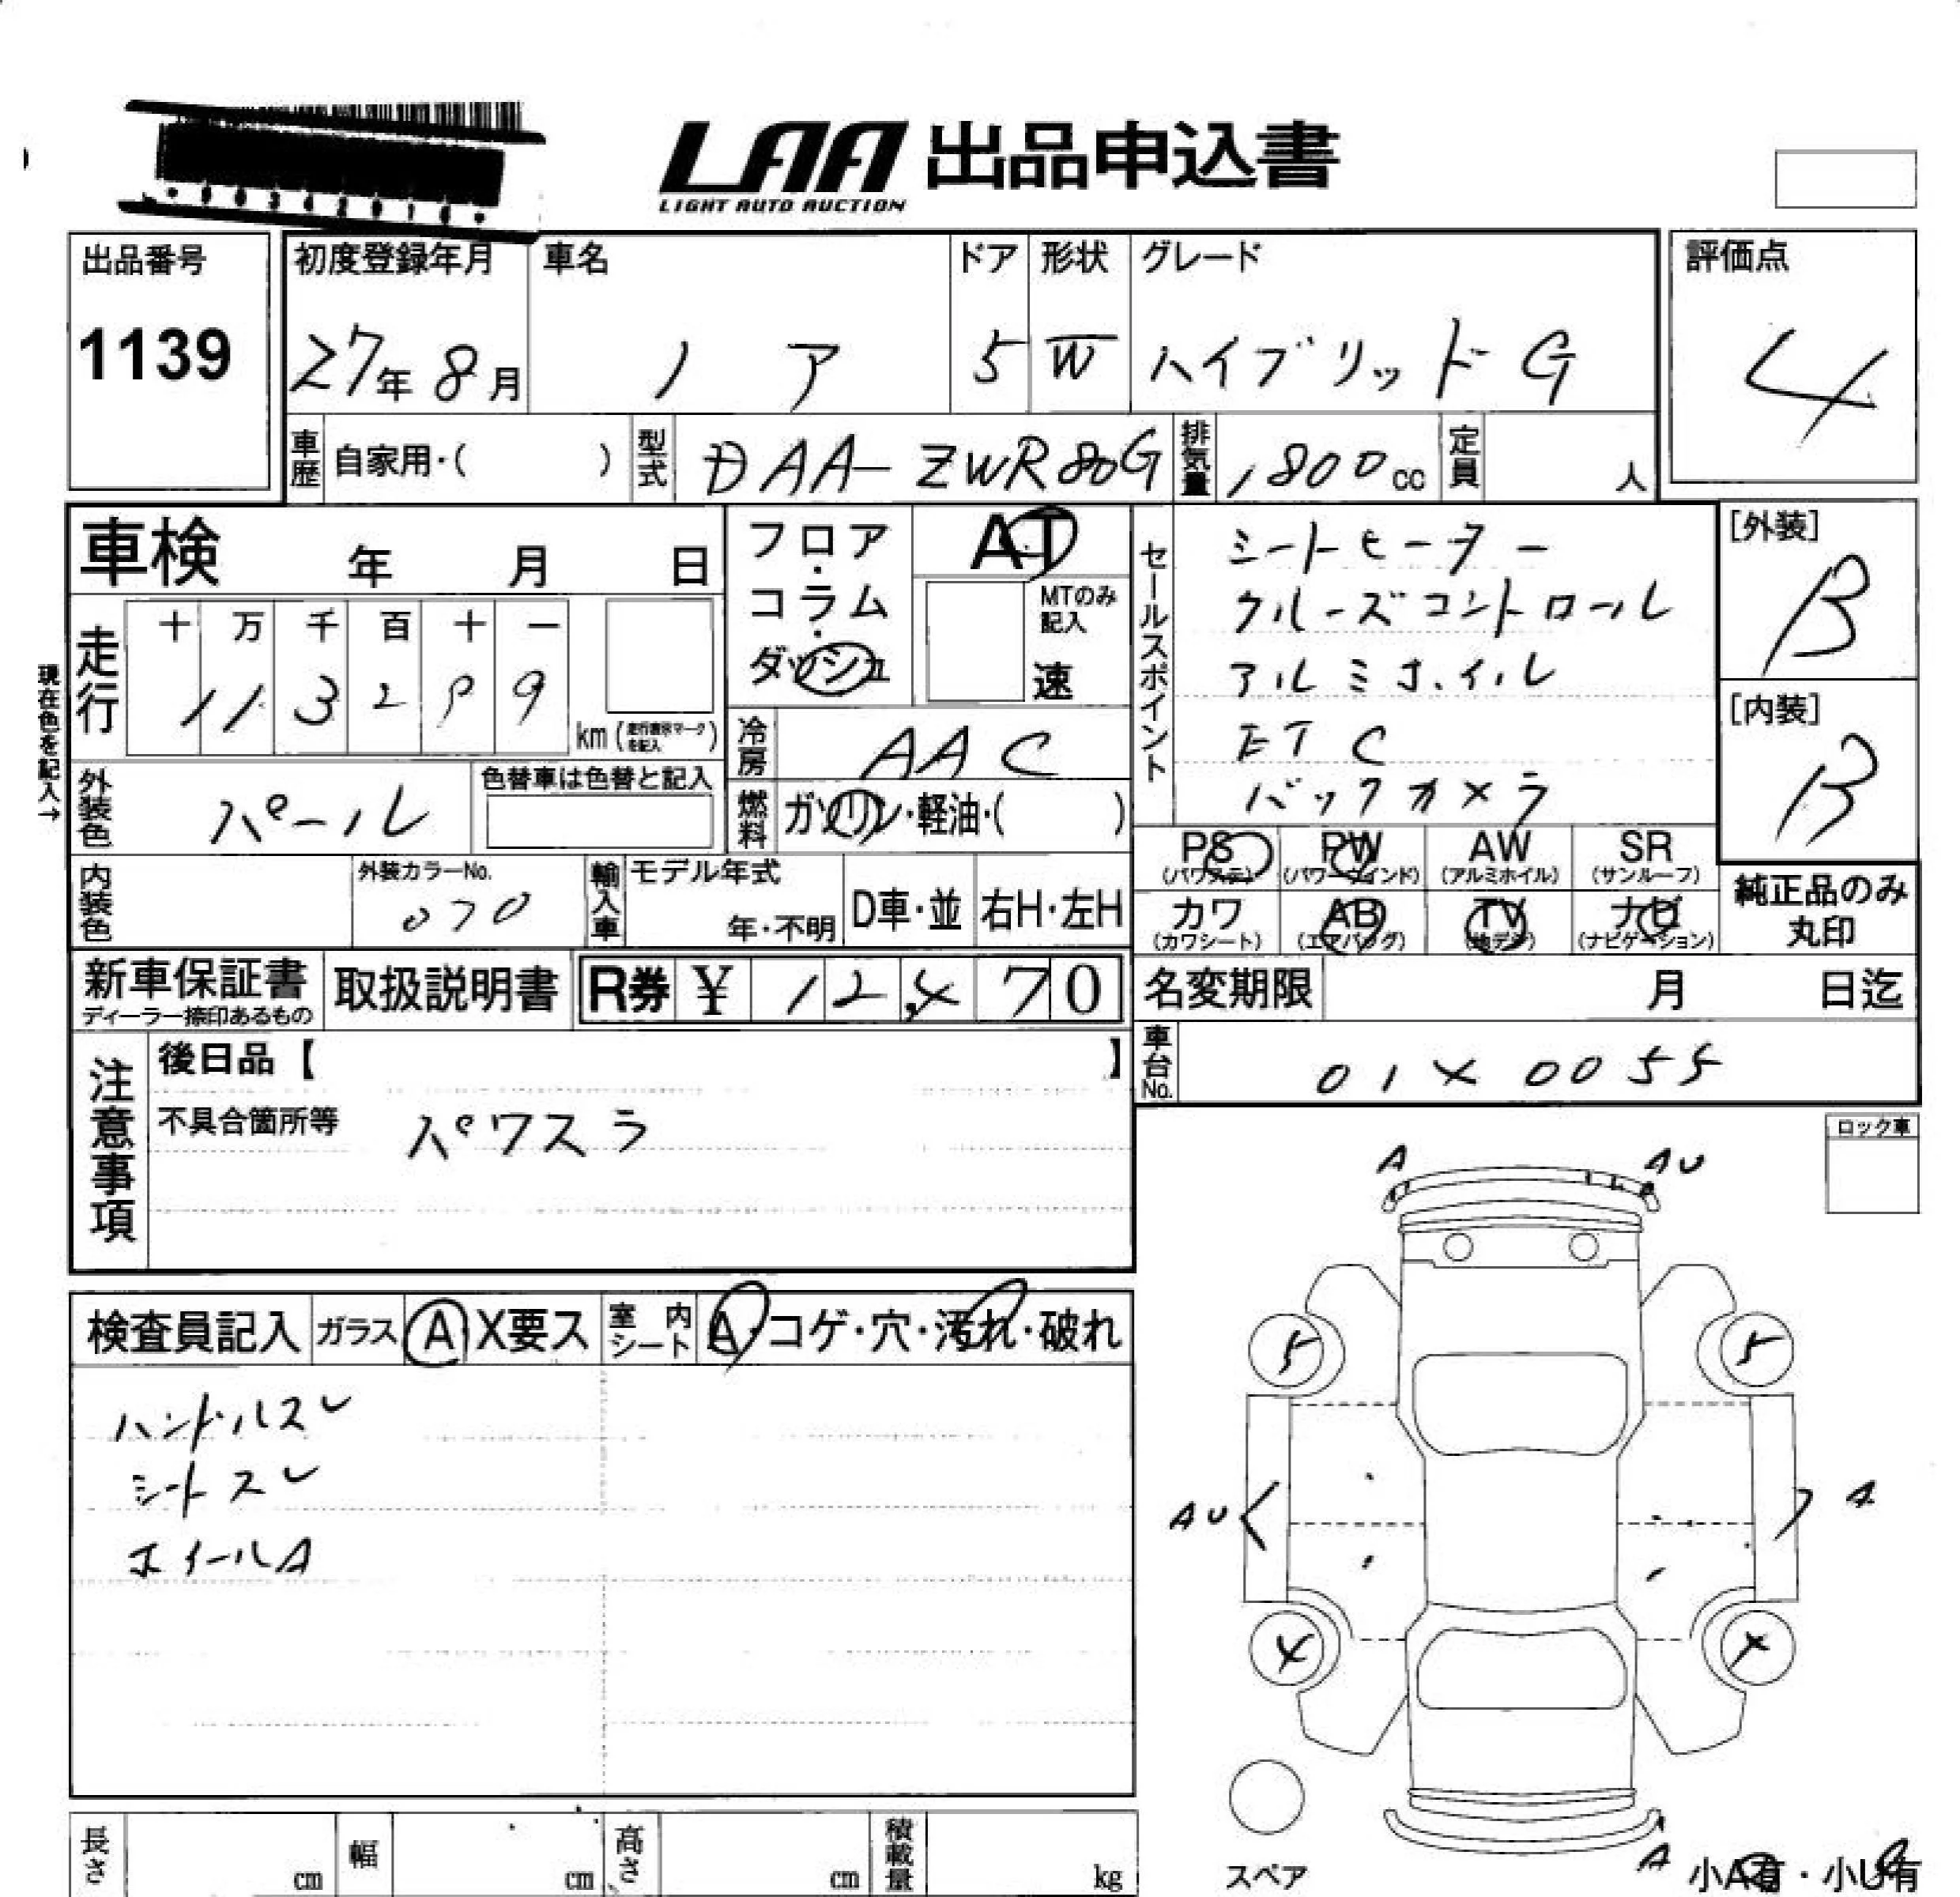 LAA 出品申込書
LIGHT AUTO AUCTION
出品番号
1139
初度登録年月
27年 8月
車名
ノア
ドア
5
形状
W
グレード
ハイブリッド G
評価点
4
車歴 自家用・( )
型式 DAA-ZWR80G
排気量 1,800cc
定員 人
車検 年 月 日
フロア・コラム・ダッシュ
AT
MTのみ記入
速
セールスポイント
シートヒーター
クルーズコントロール
アルミホイル
ETC
バックカメラ
[外装]
B
[内装]
B
現在色を記入→
走行
十 万 千 百 十 一
1 1 3 2 9
km
冷房 AAC
外装色 パール
色替車は色替と記入
燃料 ガソリン・軽油・( )
PS (パワステ)
PW (パワーウインド)
AW (アルミホイル)
SR (サンルーフ)
内装色
外装カラーNo.
070
輸入車
モデル年式
年・不明
D車・並
右H・左H
カワ (カワシート)
AB (エアバッグ)
TV (地デジ)
ナビ (ナビゲーション)
純正品のみ
丸印
新車保証書
ディーラー捺印あるもの
取扱説明書
R券 ¥ 12,470
名変期限 月 日迄
車台No. 01X0055
注意事項
後日品【 】
不具合箇所等 パワスラ
ロック車
A
AU
検査員記入
ガラス A X要ス
室内シート A・コゲ・穴・汚れ・破れ
ハンドルスレ
シートスレ
ホイールA
5
5
AU
A
4
4
スペア
A
小A有・小U有
長さ cm
幅 cm
高さ cm
積載量 kg